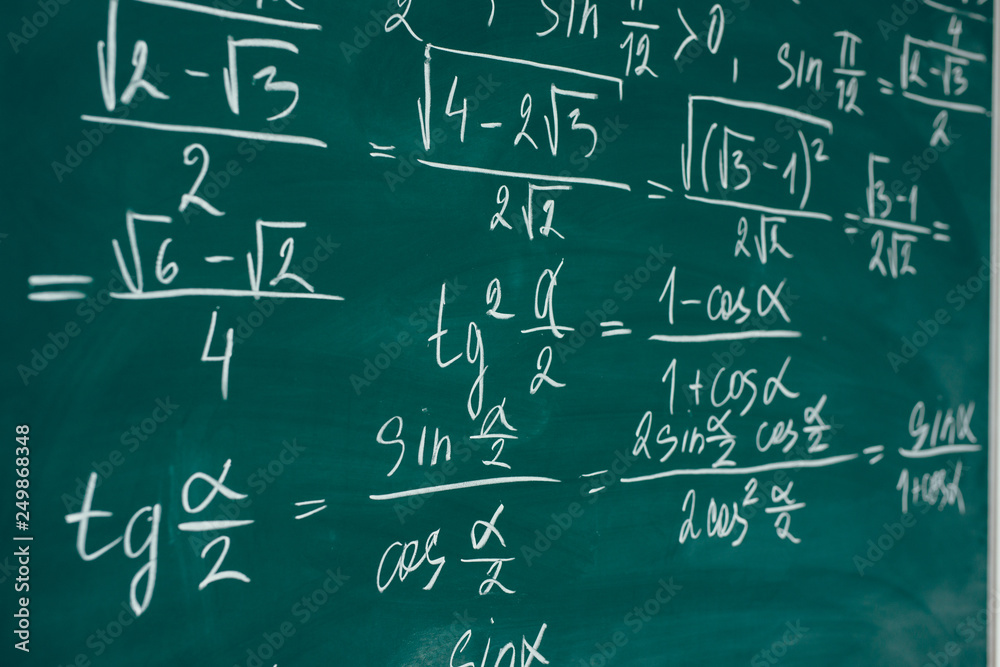 2 , sin π/12 >0 , sin π/12 = √(2-√3)/4 =
√(2-√3)/2 = √(4-2√3)/2√2 = √((√3-1)²)/2√2 = √3-1/2√2 =
= √6-√2/4
tg² α/2 = 1-cosα/1+cosα
tg α/2 = sin α/2 / cos α/2 = 2sin α/2 cos α/2 / 2cos² α/2 = sinα/1+cosα
sinα
Adobe Stock | #249868348